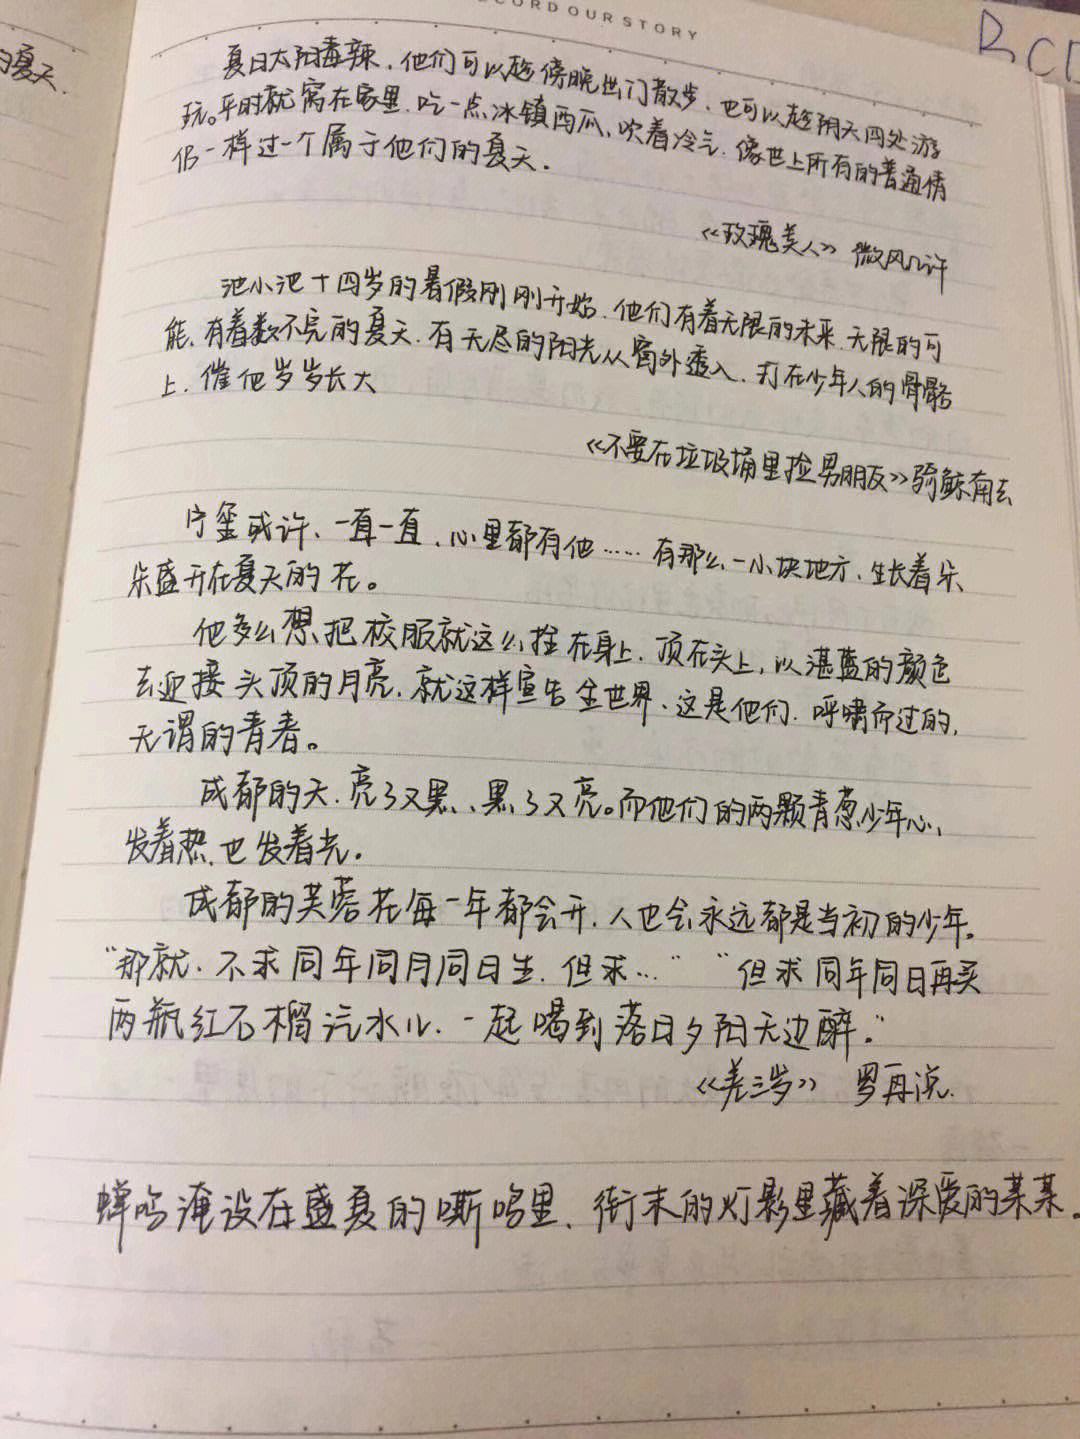 RECORD OUR STORY
BCD
的夏天.
夏日太阳毒辣，他们可以趁傍晚出门散步，也可以趁阴天四处游
玩。平时就窝在家里，吃一点冰镇西瓜、吹着冷气，像世上所有的普通情
侣一样过一个属于他们的夏天.
《玫瑰美人》 微风几许
池小池十四岁的暑假刚刚开始，他们有着无限的未来，无限的可
能，有着数不完的夏天，有无尽的阳光从窗外透入，打在少年人的骨骼
上，催他岁岁长大
《不要在垃圾桶里捡男朋友》骑鲸南去
宁玺或许、一直一直，心里都有他……有那么一小块地方、生长着朵
朵盛开在夏天的花。
他多么想把校服就这么拴在身上，顶在头上，以湛蓝的颜色
去迎接头顶的月亮，就这样宣告全世界、这是他们，呼啸而过的，
无谓的青春。
成都的天，亮了又黑、黑了又亮。而他们的两颗青葱少年心，
发着热，也发着光.
成都的芙蓉花每一年都会开，人也会永远都是当初的少年。
“那就，不求同年同月同日生，但求…” “但求同年同日再买
两瓶红石榴汽水儿，一起喝到落日夕阳无边醉。”
《差三岁》 罗再说.
蝉鸣淹没在盛夏的嘶鸣里，街末的灯影里藏着深爱的某某.